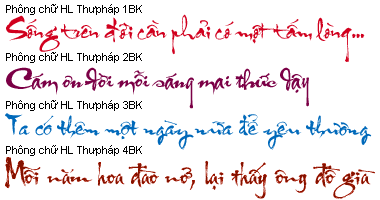 Phông chữ HL Thưpháp 1BK
Sống trên đời cần phải có một tấm lòng...
Phông chữ HL Thưpháp 2BK
Cám ơn đời mỗi sáng mai thức dậy
Phông chữ HL Thưpháp 3BK
Ta có thêm một ngày nữa để yêu thương
Phông chữ HL Thưpháp 4BK
Mỗi năm hoa đào nở, lại thấy ông đồ già